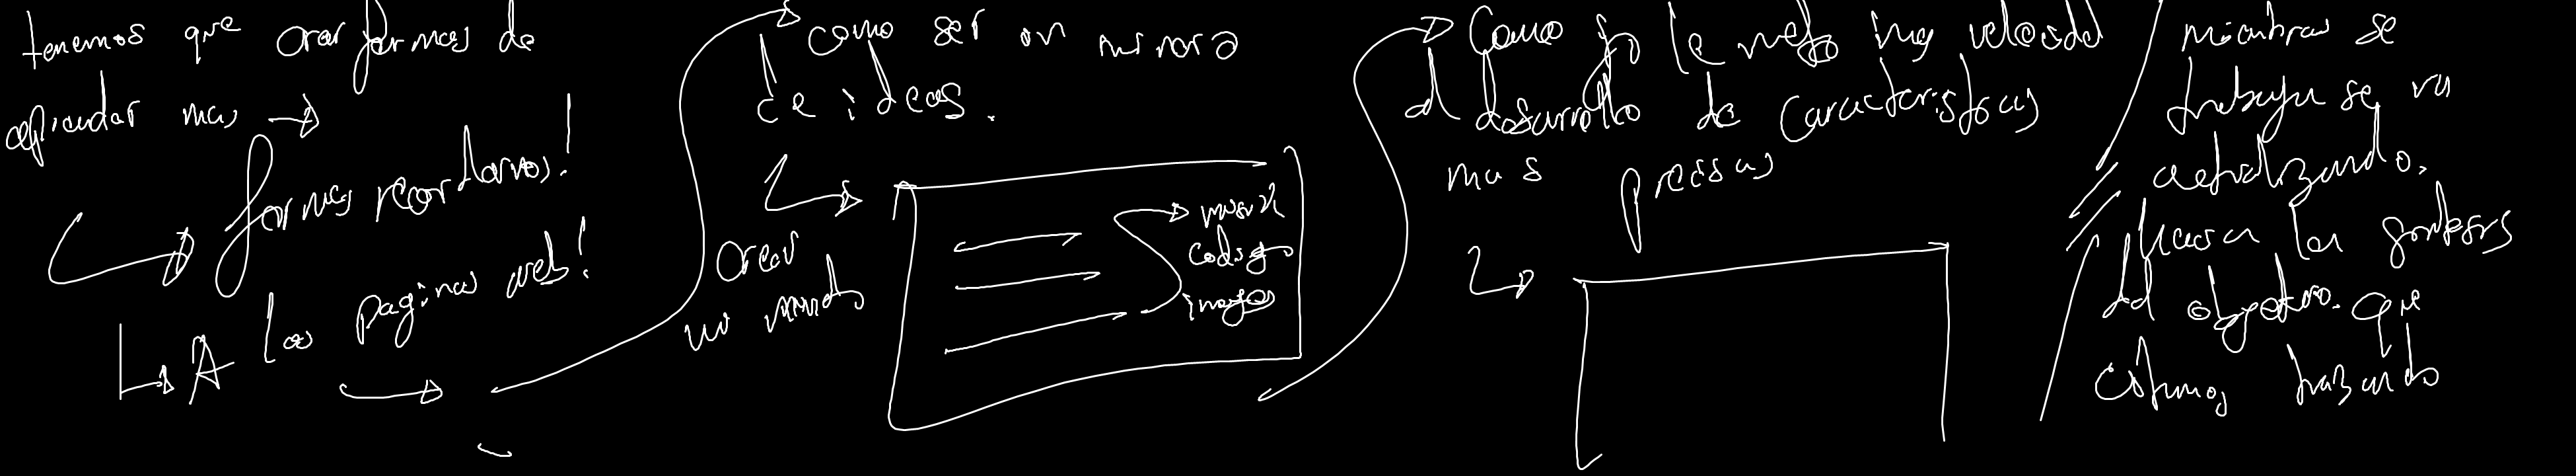 tenemos que crear formas de
aprender mas
formas recordarnos!
A las paginas web!
como ser un minero
de ideas.
Crear
un mundo
codigo
images
Como yo le meto mas velocidad
al desarrollo de caracteristicas
mas precisas
mientras se
trabaja se va
actualizando.
del objetivo. que
estamos trazando